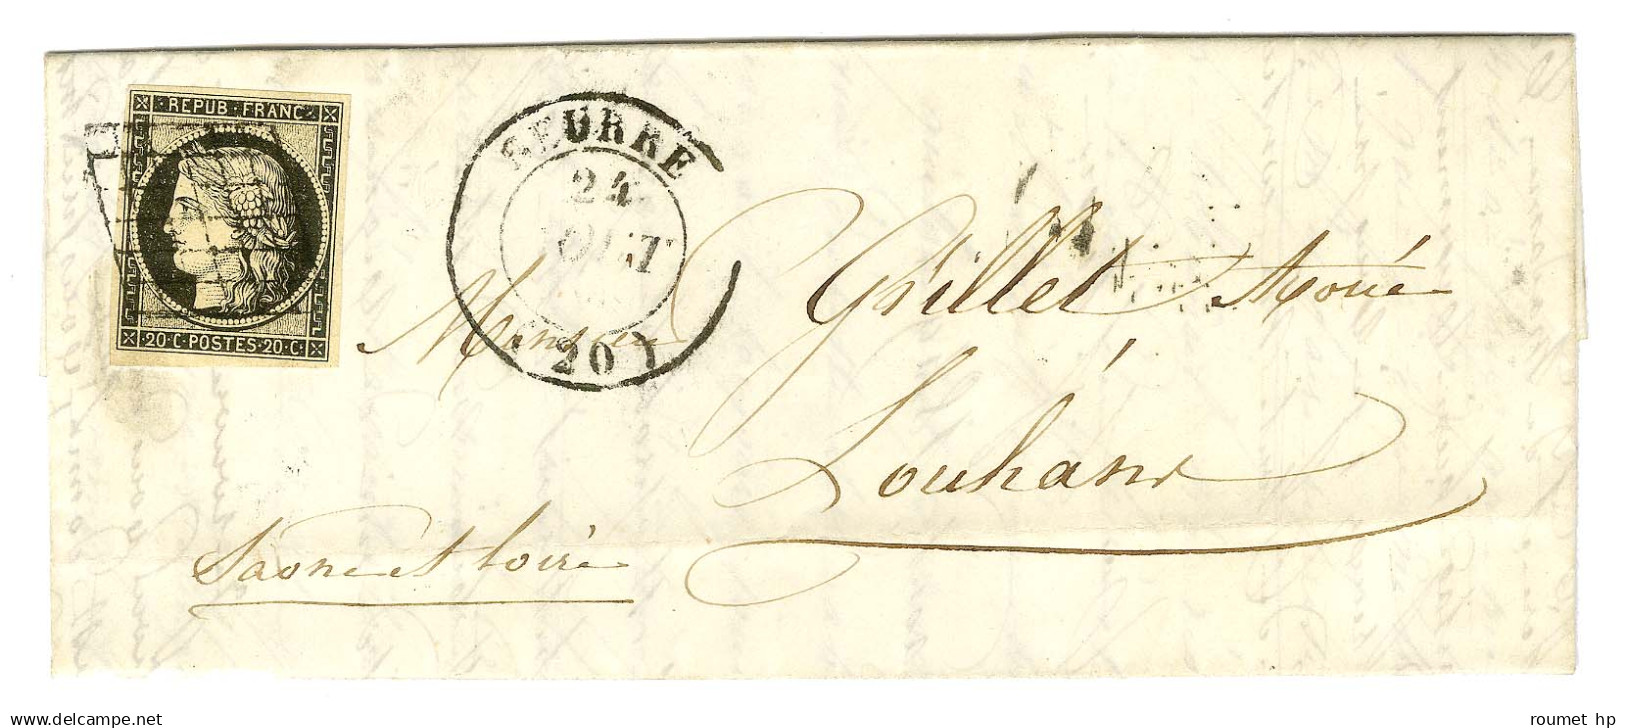 REPUB · FRANC
· 20 · C · POSTES · 20 · C ·
SEURRE
24
AOUT
(20)
Monsieur Grillet Avoué
Louhans
Saone et Loire
roumet hp